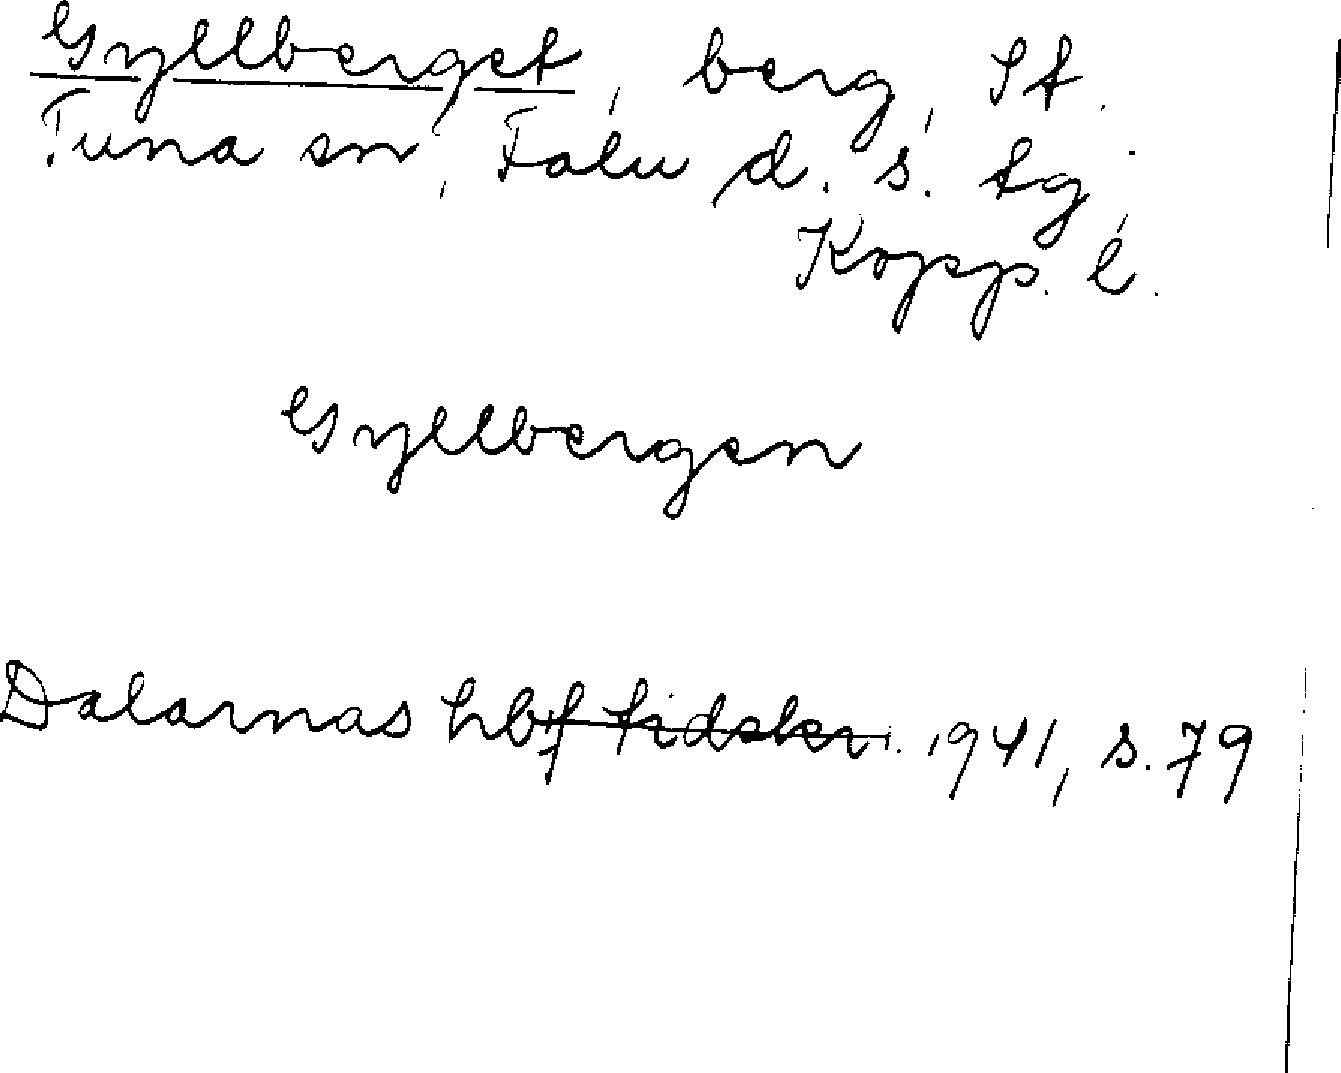 Gyllberget, berg, St.
Tuna sn, Falu d. s. tg,
Kopp. l.
Gyllbergen
Dalarnas hbf tidskr. 1941, s. 79